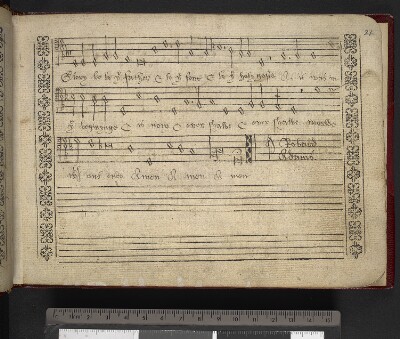 Glory be to yͤ father & to yͤ sone & to yͤ holy goste As it was in
yͤ begynynge & is nowe & ever shalbe & ever shalbe worlde
with out ende Amen A men A men
Richard
Adams